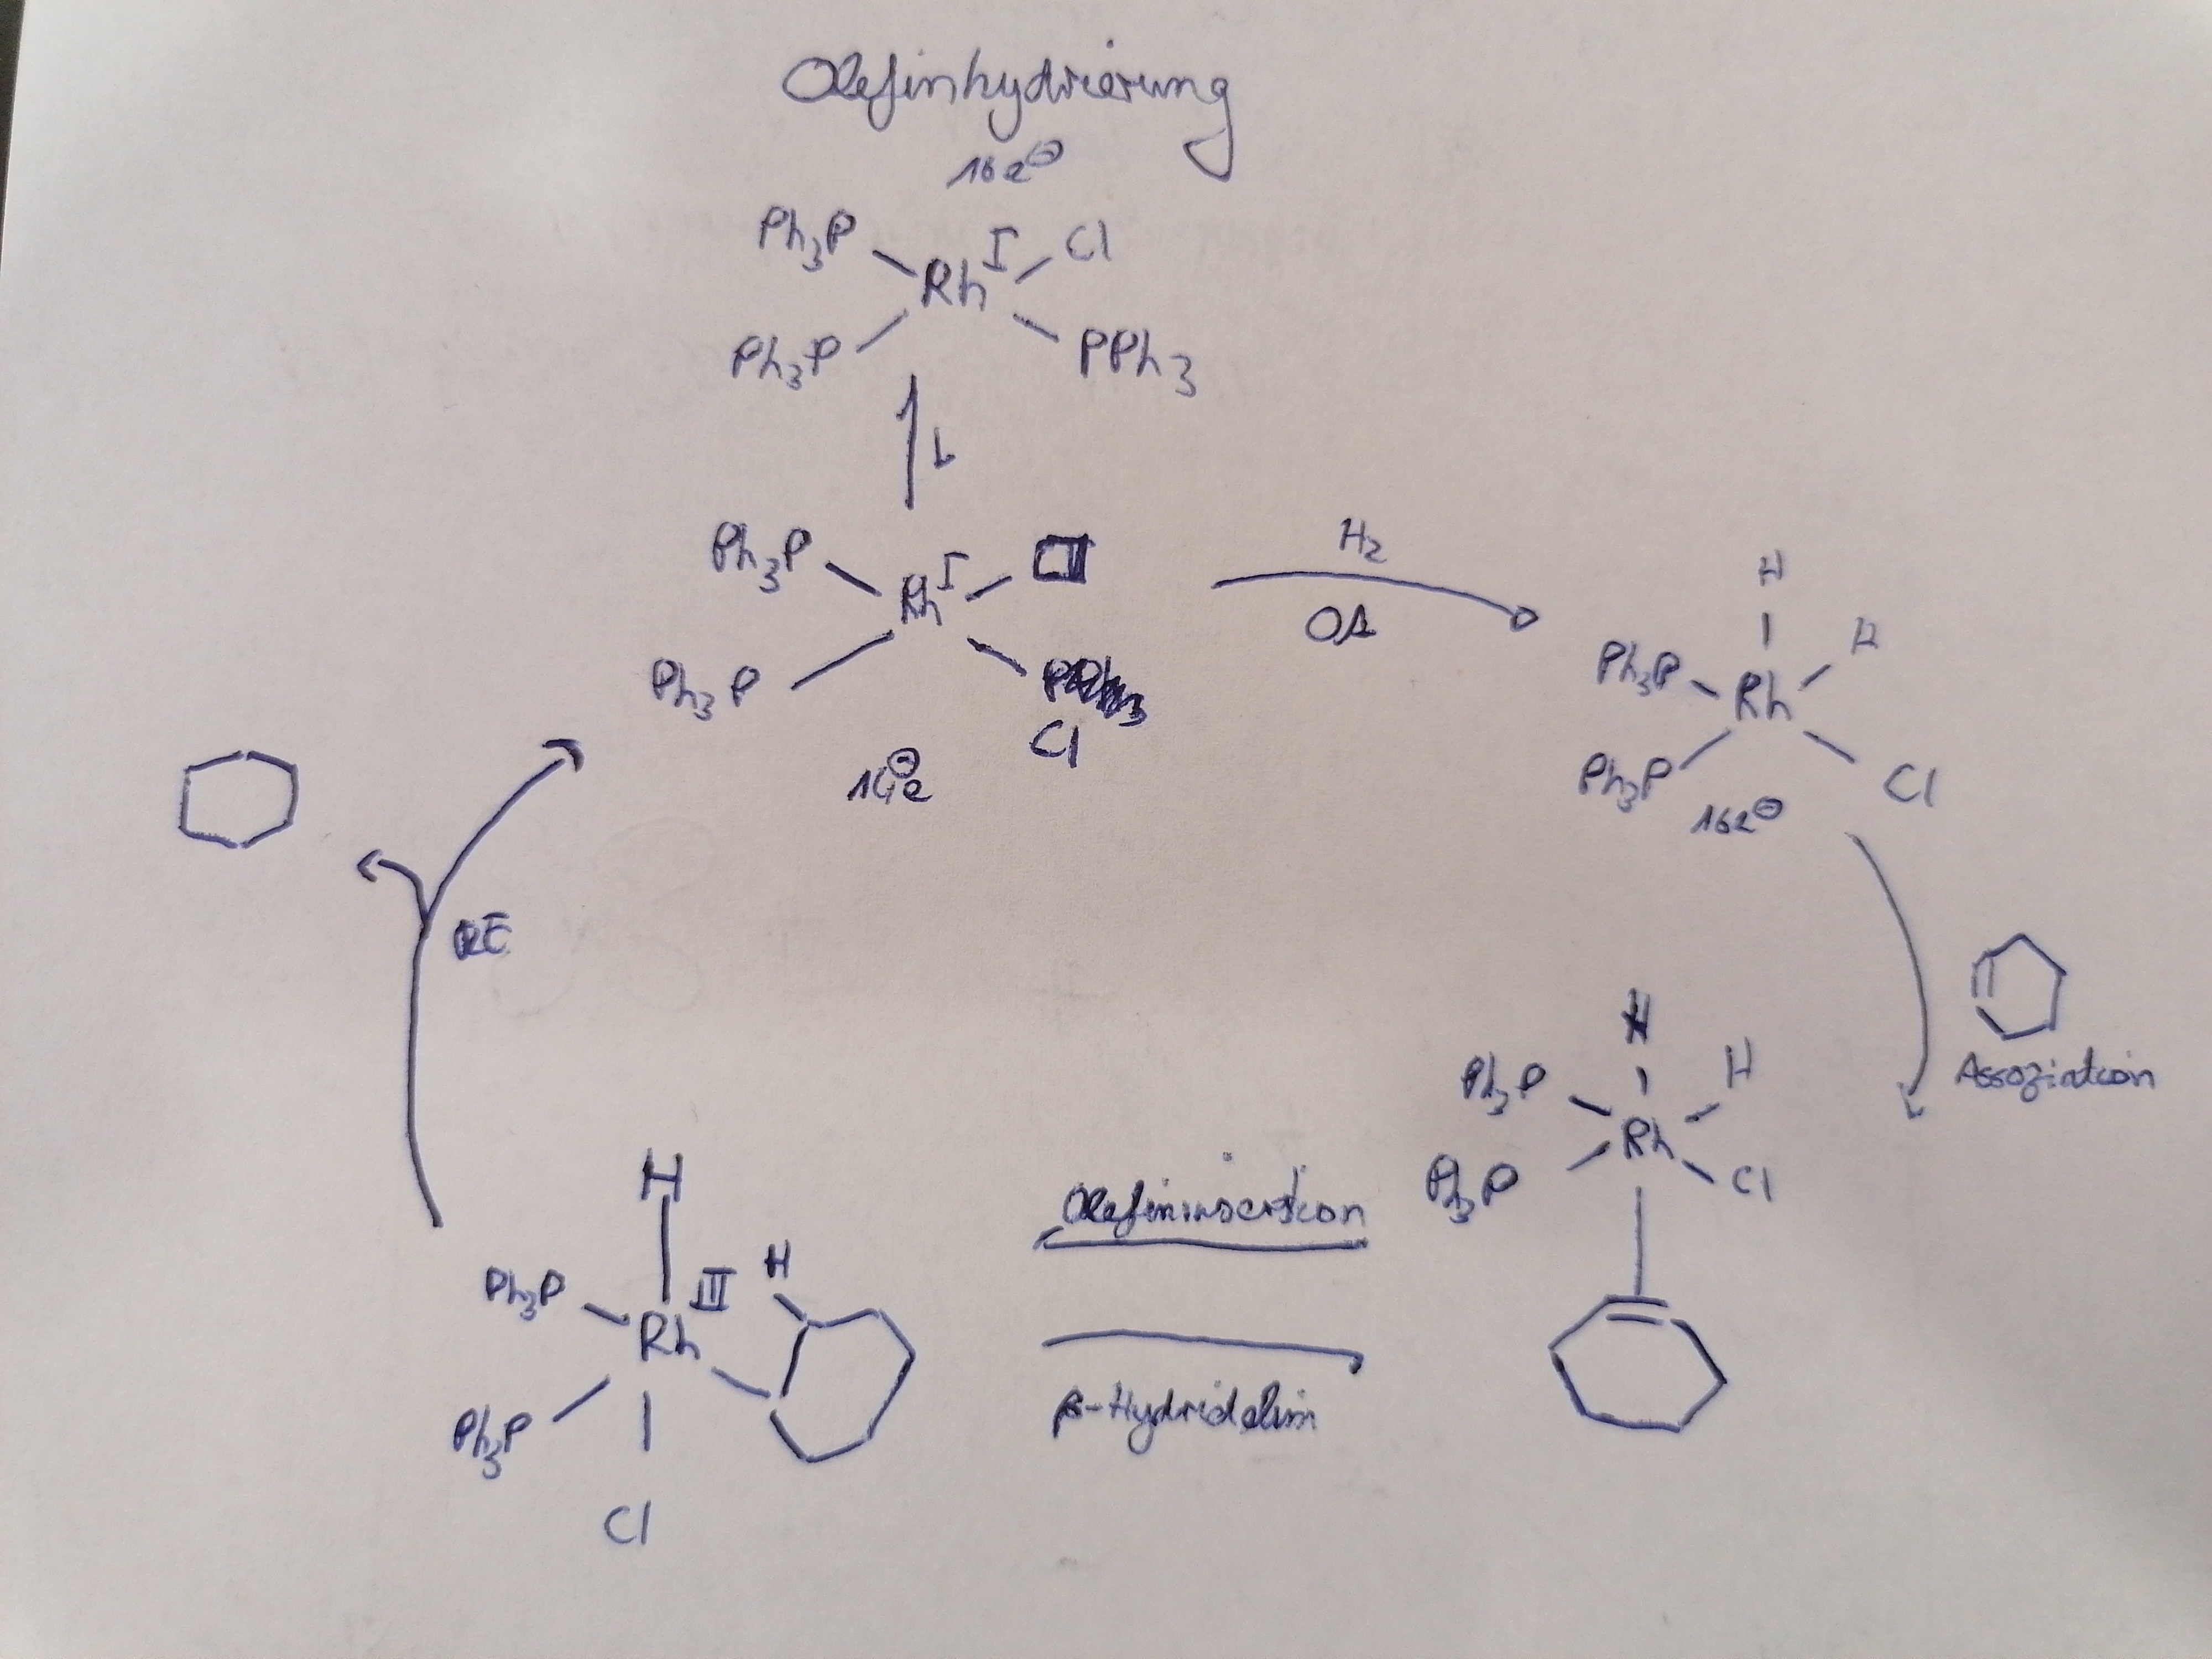 Olefinhydrierung
16e⊖
Ph₃P Cl
Rh^I
Ph₃P PPh₃
L
Ph₃P
Rh^I
Ph₃P
Cl
14e⊖
H₂
OA
H
H
Ph₃P
Rh
Ph₃P Cl
16e⊖
Assoziation
H
Ph₃P H
Rh
Ph₃P Cl
Olefininsertion
β-Hydridelim
H
Ph₃P III H
Rh
Ph₃P
Cl
RE